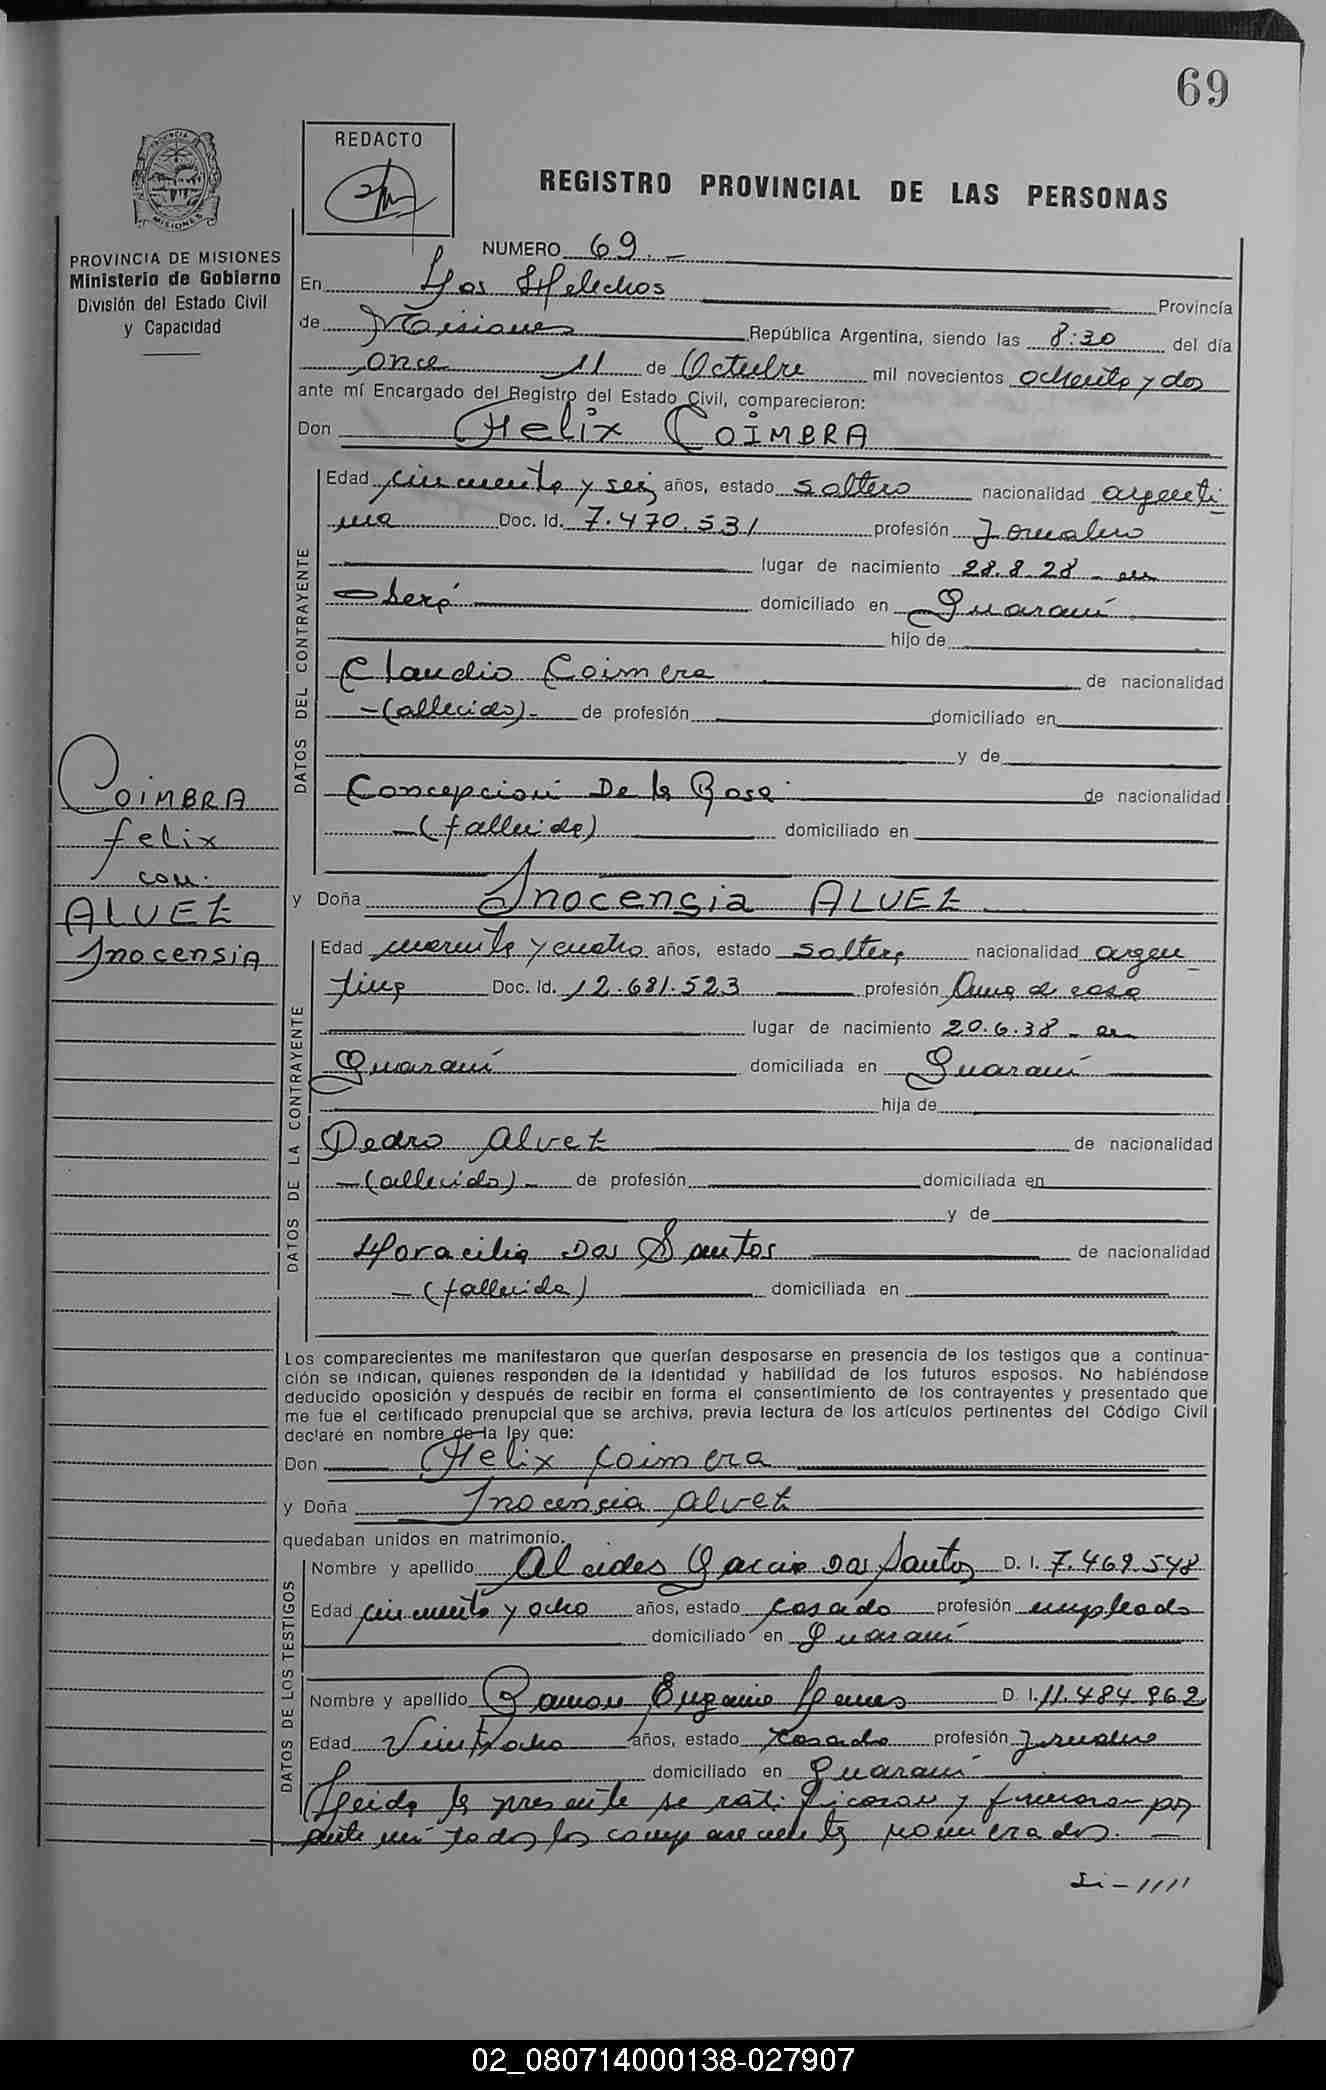 69
REDACTO
REGISTRO PROVINCIAL DE LAS PERSONAS
PROVINCIA DE MISIONES
Ministerio de Gobierno
División del Estado Civil
y Capacidad
NUMERO 69.-
En Los Helechos Provincia
de Misiones República Argentina, siendo las 8:30 del día
once 11 de Octubre mil novecientos ochenta y dos
ante mí Encargado del Registro del Estado Civil, comparecieron:
Don Felix COIMBRA
DATOS DEL CONTRAYENTE
Edad cincuenta y seis años, estado soltero nacionalidad argenti
na Doc. Id. 7.470.531 profesión Jornalero
lugar de nacimiento 28.8.28 - en
Oberá domiciliado en Guaraní
hijo de
Claudio Coimbra de nacionalidad
-(fallecido)- de profesión domiciliado en
y de
Concepción De la Rosa de nacionalidad
-(fallecida) domiciliado en
COIMBRA
felix
con
ALVEZ
InocensiA
y Doña Inocensia ALVEZ
DATOS DE LA CONTRAYENTE
Edad cuarenta y cuatro años, estado soltera nacionalidad argen
tina Doc. Id. 12.681.523 profesión Ama de casa
lugar de nacimiento 20.6.38 - en
Guaraní domiciliada en Guaraní
hija de
Pedro Alvez de nacionalidad
-(fallecido)- de profesión domiciliada en
y de
Horacilia Dos Santos de nacionalidad
-(fallecida) domiciliada en
Los comparecientes me manifestaron que querían desposarse en presencia de los testigos que a continua-
ción se indican, quienes responden de la identidad y habilidad de los futuros esposos. No habiéndose
deducido oposición y después de recibir en forma el consentimiento de los contrayentes y presentado que
me fue el certificado prenupcial que se archiva, previa lectura de los artículos pertinentes del Código Civil
declaré en nombre de la ley que:
Don Felix Coimbra
y Doña Inocensia Alvez
quedaban unidos en matrimonio.
DATOS DE LOS TESTIGOS
Nombre y apellido Alcides Garcia Dos Santos D. I. 7.469.548
Edad cincuenta y ocho años, estado casado profesión empleado
domiciliado en Guaraní
Nombre y apellido Ramon Eugenio D. I. 11.484.962
Edad Veintiocho años, estado casado profesión Jornalero
domiciliado en Guaraní
Leida la presente se ratificaron y firmaron por
ante mi todos los comparecientes nomerados. -
02_080714000138-027907